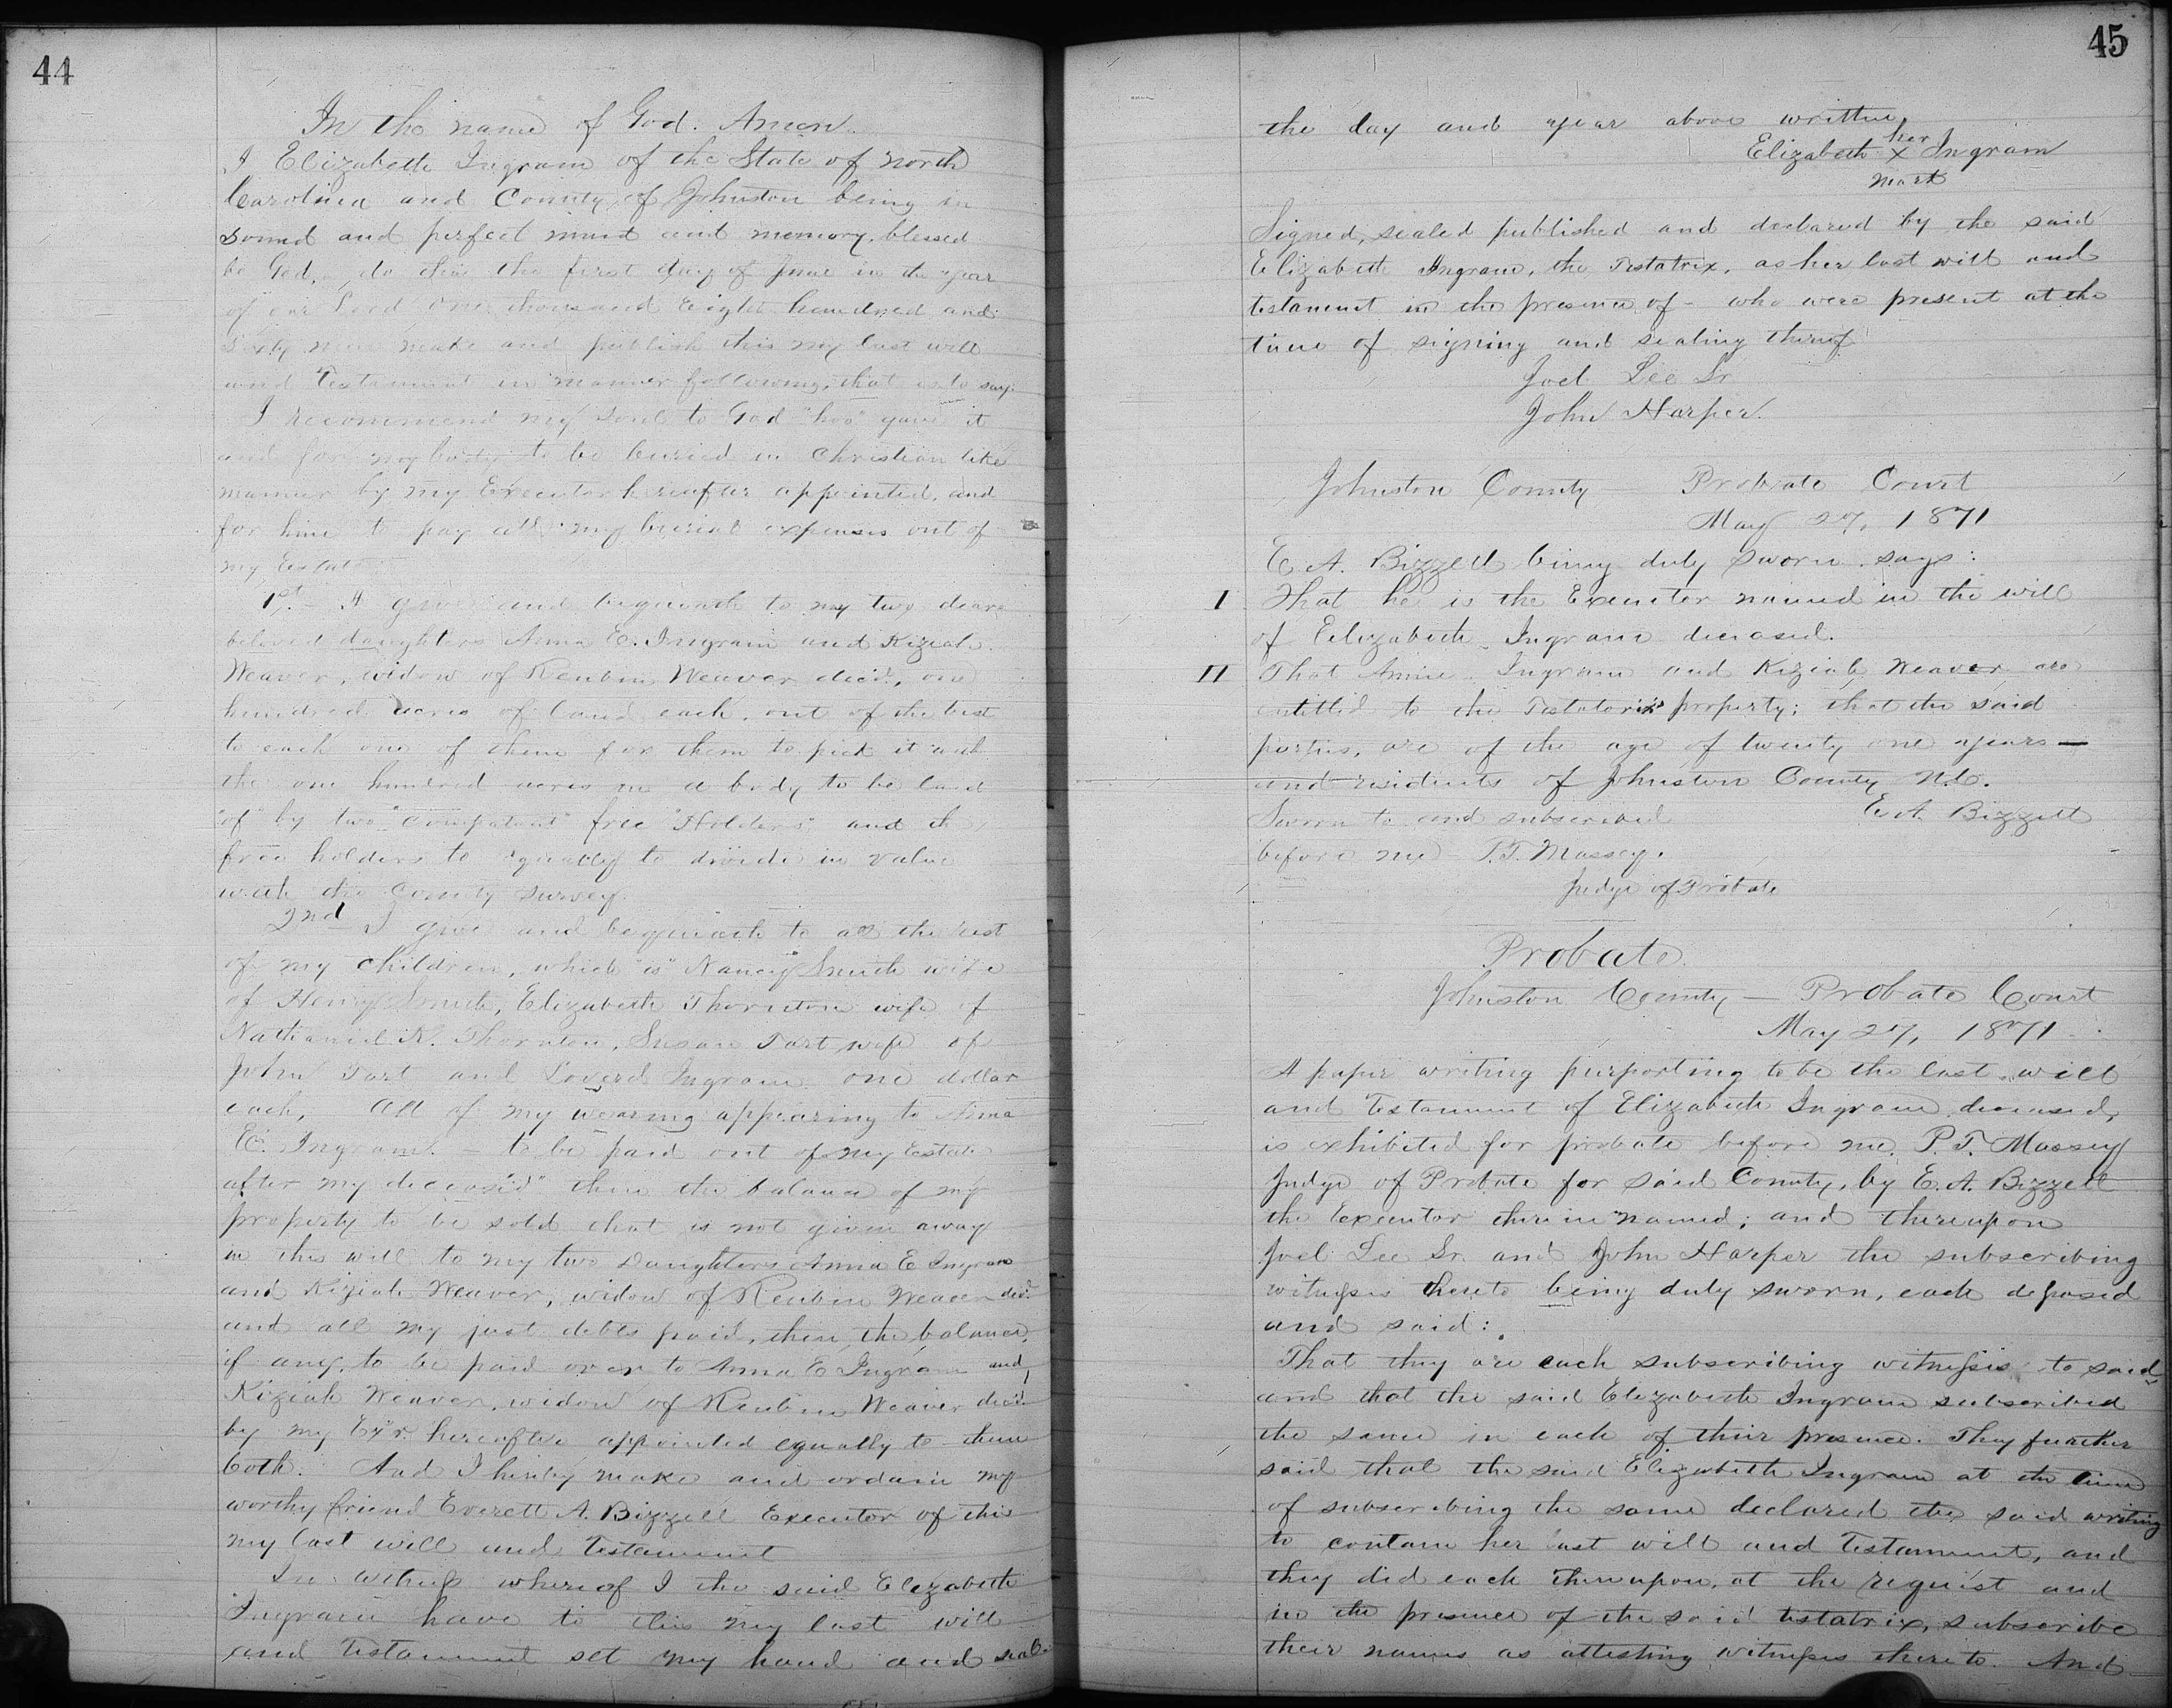 44
In the name of God. Amen.
I Elizabeth Ingram of the State of North
Carolina and County of Johnston being in
sound and perfect mind and memory, blessed
be God, do this the first day of June in the year
of our Lord one thousand Eight hundred and
Sixty nine make and publish this my last will
and Testament in manner following, that is to say:
I recommend my soul to God "hoo" gave it
and for my body to be buried in Christian like
manner by my Executor hereafter appointed, and
for him to pay all my burial expenses out of
my Estate
1st. I give and bequeath to my two dear
beloved daughters Anna E. Ingram and Kiziah
Weaver, widow of Reubin Weaver decd., one
hundred acres of land each, out of the best
to each one of them for them to pick it out
the one hundred acres in a body to be laid
"of" by two "Compatant" free "Holders" and th
free holders to equally to divide in value
with the County survey.
2nd I give and bequeath to all the rest
of my children, which "is" Nancy Smith wife
of Henry Smith, Elizabeth Thornton wife of
Nathaniel K. Thornton, Susan Tart wife of
John Tart and Loverd Ingram one dollar
each, All of my wearing appearing to Anna
E. Ingram. - to be paid out of my Estate
after my deceas'd" then the balance of my
property to be sold that is not given away
in this will to my two Daughters Anna E Ingram
and Kiziah Weaver, widow of Reubin Weaver decd.
and all my just debts paid, then the balance,
if any, to be paid over to Anna E Ingram and
Kiziah Weaver, widow of Reubin Weaver decd.
by my Ex'r. hereafter appointed equally to them
both. And I hereby make and ordain my
worthy friend Everett A. Bizzell Executor of this
my last will and Testament
In witness whereof I the said Elizabeth
Ingram have to this my last will
and Testament set my hand and seal
45
the day and year above written
her
Elizabeth X Ingram
mark
Signed, sealed published and declared by the said
Elizabeth Ingram, the Testatrix, as her last will and
testament in the presence of - who were present at the
time of signing and sealing thereof
Joel Lee Sr
John Harper.
Johnston County Probate Court
May 27, 1871
E. A. Bizzell being duly sworn says:
I That he is the Executor named in the will
of Elizabeth Ingram deceased.
II That Annie Ingram and Kiziah Weaver are
entitled to the Testatorix's property; that the said
parties, are of the age of twenty one years —
and residents of Johnston County N.C.
Sworn to and subscribed E. A. Bizzell
before me P. T. Massey.
Judge of Probate
Probate.
Johnston County — Probate Court
May 27, 1871
A paper writing purporting to be the last will
and Testament of Elizabeth Ingram deceased,
is exhibited for probate before me, P. T. Massey
Judge of Probate for said County, by E. A. Bizzell
the Executor therein named; and thereupon
Joel Lee Sr. and John Harper the subscribing
witnesses thereto being duly sworn, each deposed
and said:
That they are each subscribing witnesses to said
and that the said Elizabeth Ingram subscribed
the same in each of their presence. They further
said that the said Elizabeth Ingram at the time
of subscribing the same declared the said writing
to contain her last will and Testament, and
they did each thereupon, at the request and
in the presence of the said testatrix, subscribe
their names as attesting witnesses thereto. And